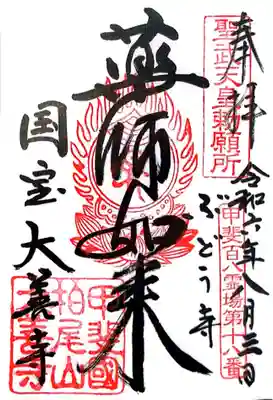 奉拝
聖武天皇勅願所
令和六年八月三日
甲斐百八霊場第十八番
ぶどう寺
薬師如来
国宝大善寺
甲斐國
柏尾山
大善寺